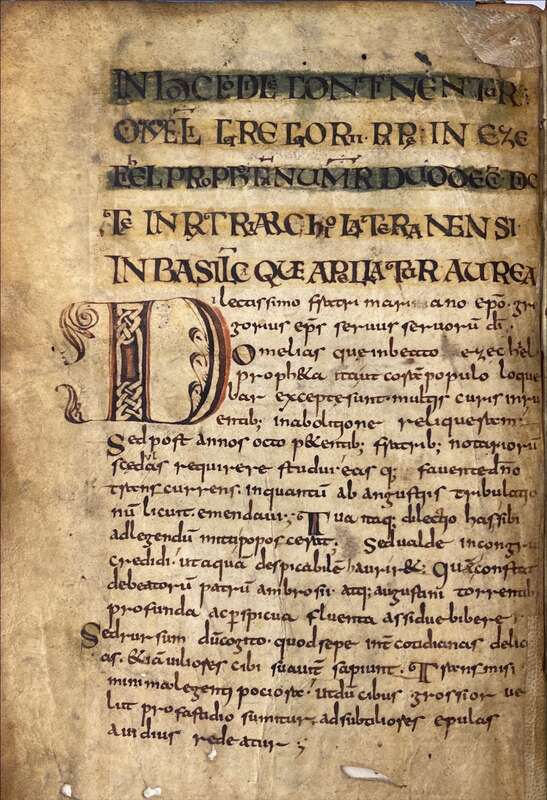 IN hOC CODICE CONTINENTUR
OMEL GREGORII PP IN EZE
hIEL PROPhETA NUMR DUODECI DC
TE IN PATRIARChIO LATERANENSI
IN BASILIC QUE APPELLATUR AUREA
Dilectissimo fratri mariano epo gre
gorius eps servus servorū di
Omelias que in beato ezechiel
propheta ita ut coram populo loque
bar excepte sunt multis curis inru
entib; in abolitione reliqueram
Sed post annos octo petentib; fratrib; notariorū
scedas requirere studui eas q; favente dno
transcurrens inquantū ab angustiis tribulatio
nū licuit emendavi; Tua itaq; dilectio has sibi
ad legendū mitti poposcerat. Sed valde incongru
credidi ut aqua despicabilē hauriret; Quā constat
debeatorū patrū ambrosii atq; augustini torrentib
profunda ac perspicua fluenta assidue bibere
Sed rursum dū cogito quod sepe int cotidianas delici
as. etiā viliores cibi suavit sapiunt. Transmisi
minima legenti pociora. ut dū cibus grossior ve
lut pro fastidio sumitur, ad subtiliores epulas
avidius redeatur;